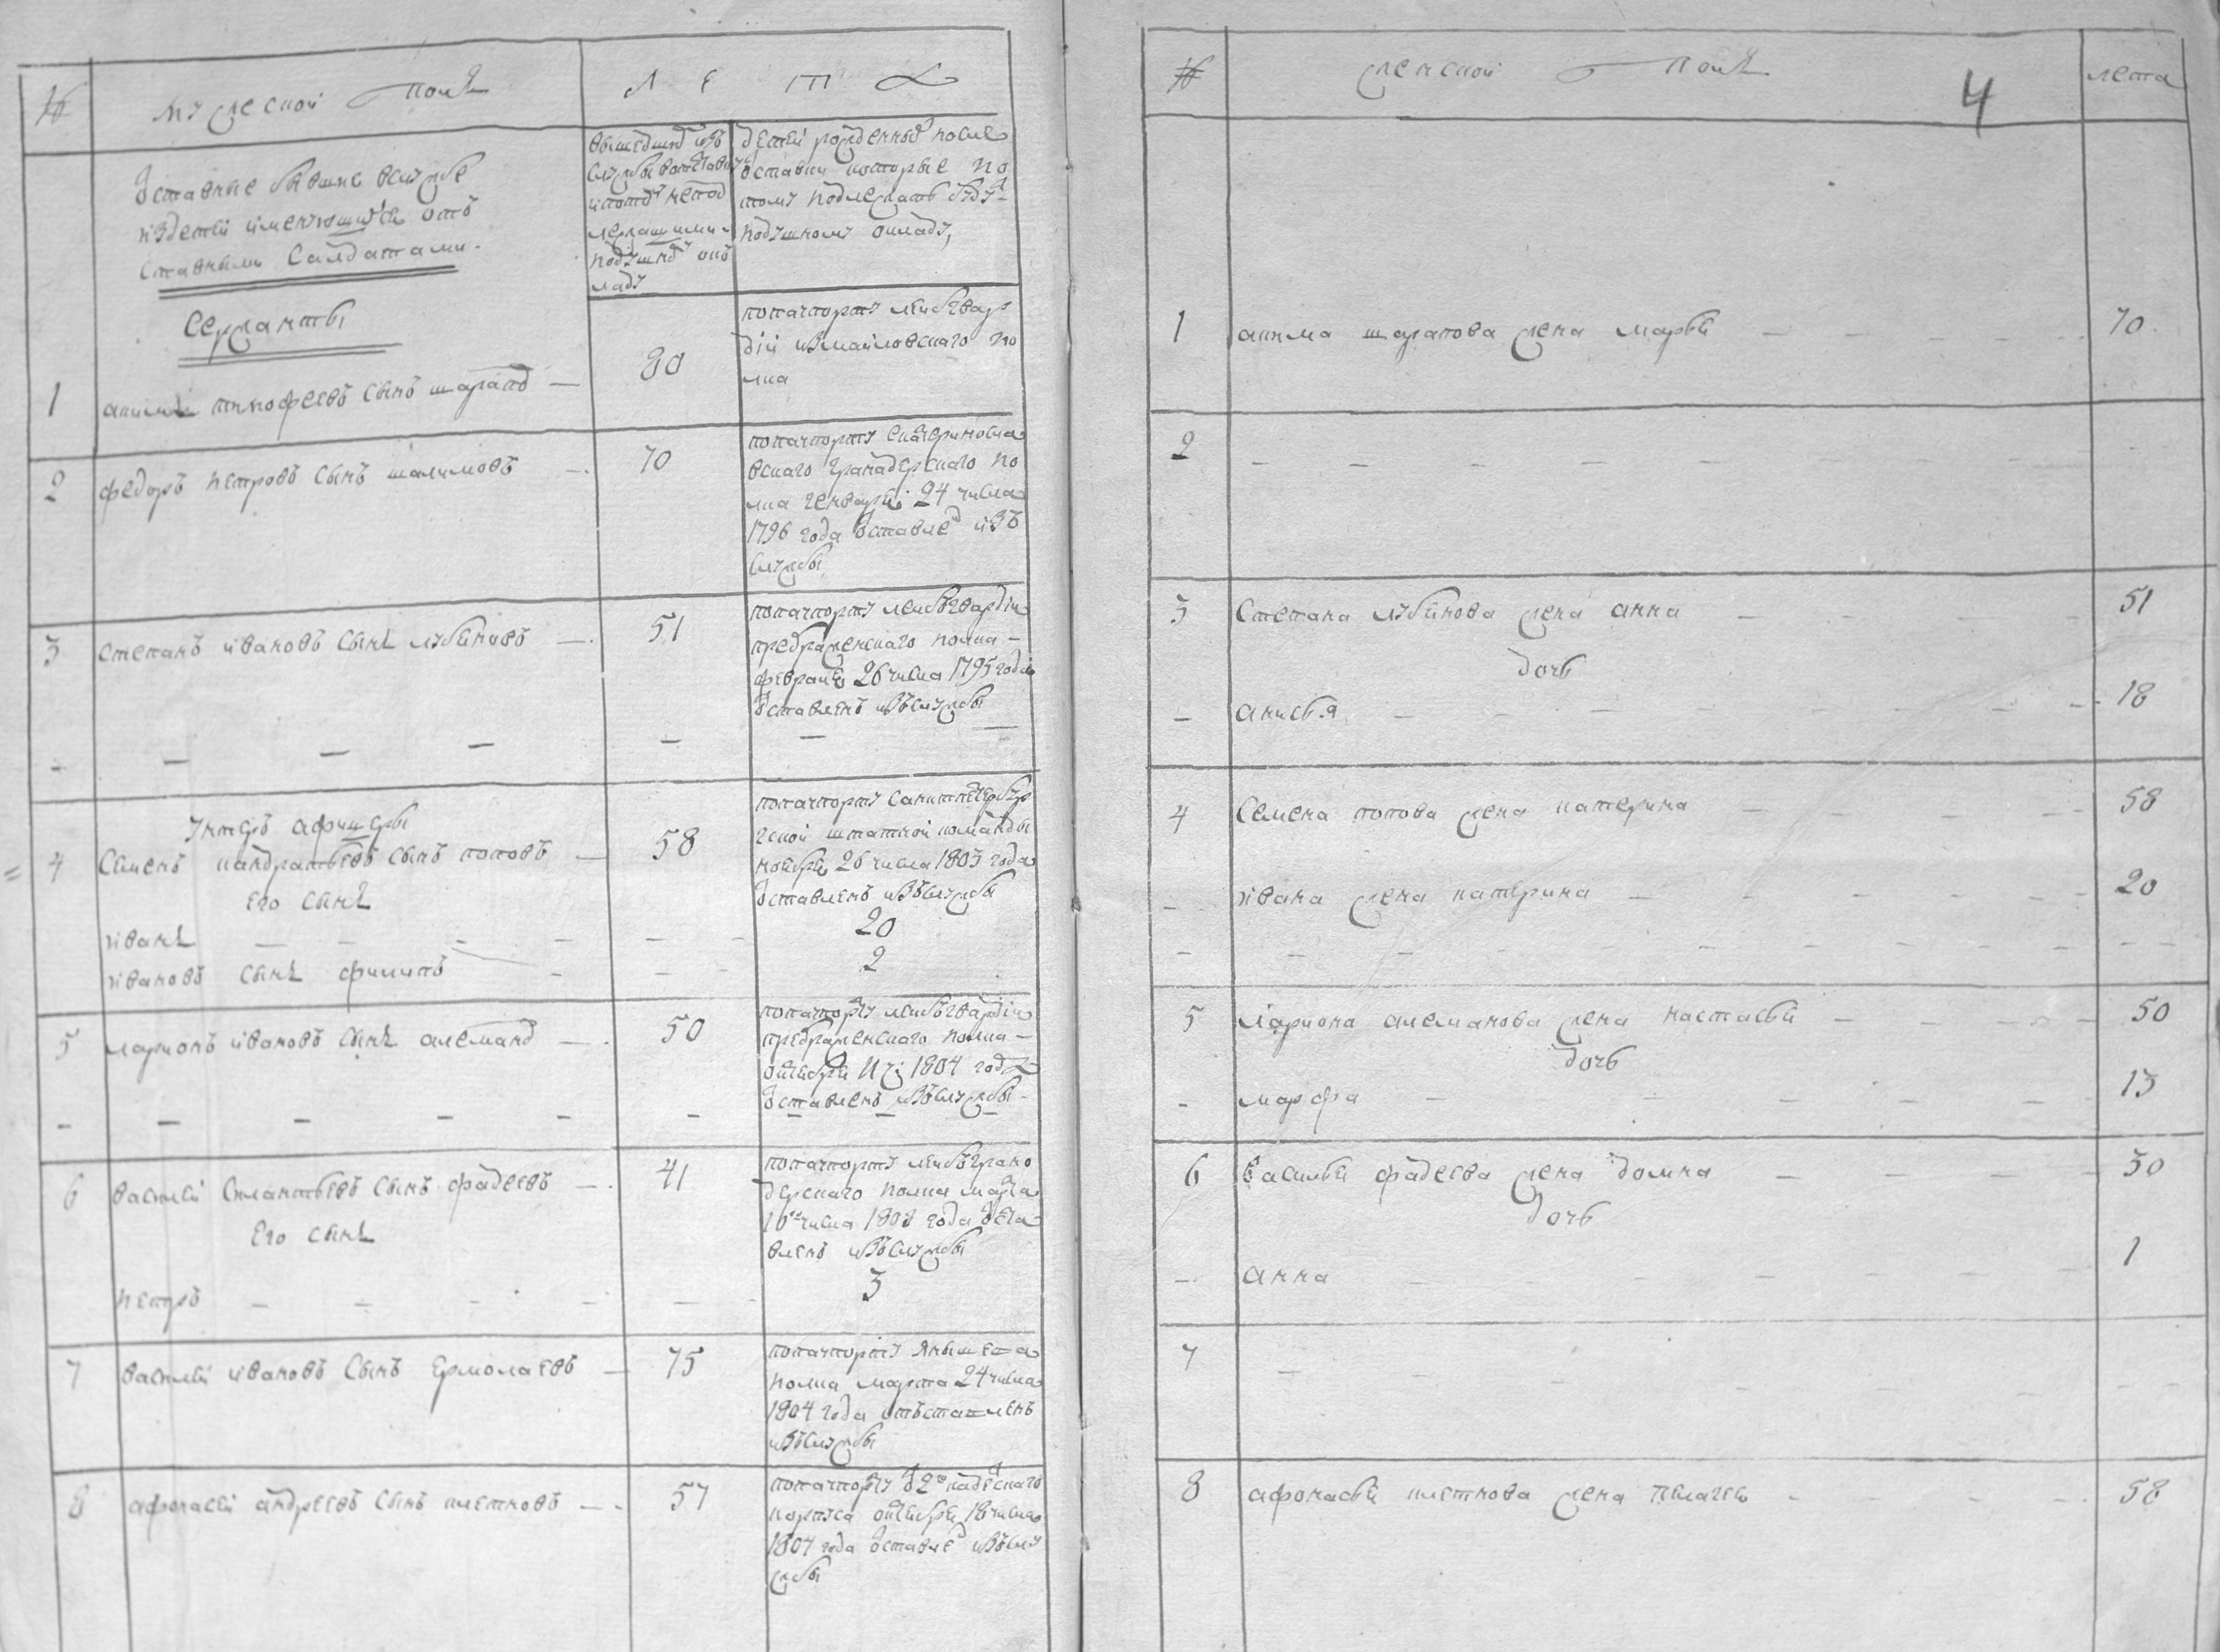 № мужеской полъ ЛЕТА
Отставные бывшие вслужбе
издетей именующихся от
ставными Салдатами.
вышедших изъ
службы вотставку
и потому непод
лежащими
подушному ок
ладу
детей рожденных после
отставки которые по
тому подлежать будут
подушному окладу,
Сержанты
1 акимъ тимофеевъ сынъ шарапов — 80
попачпорту леибгвар
дии измайловскаго по
лка
2 федоръ петровъ сынъ шалимовъ — 70
попачпорту екатериносла
вскаго гранадерскаго по
лка генваря 24 числа
1796 года отставлен изъ
службы
3 степанъ ивановъ сынъ лубяновъ — 51
попачпорту леибъгвардии
преображенскаго полка —
февраля 26 числа 1795 года
отставленъ изъслужбы
Унтеръ афицеры
4 Семенъ кандратьевъ сынъ поповъ — 58
попачпорту санктпетербур
гской штатной команды
ноября 26 числа 1803 года
отставленъ изъслужбы
его сынъ
иванъ — 20
ивановъ сынъ филипъ — 2
5 ларионъ ивановъ сынъ алеманов — 50
попачпорту леибъгвардии
преображенскаго полка —
октября 11 ч: 1804 года
отставленъ изъслужбы
6 василей силантьевъ сынъ фадеевъ — 41
попачпорту леибъграно
дерскаго полка марта
10го числа 1808 года отста
вленъ изъслужбы
Его сынъ
петръ — 3
7 василей ивановъ сынъ Ермолаевъ — 75
попачпорту
полка марта 24 числа
1804 года отъставленъ
изъслужбы
8 афонасей андреевъ сынъ плетновъ — 57
попачпорту 2го кадетскаго
корпуса октября 18 числа
1807 года отставлен изъслу
жбы
№ женской полъ лета
4
1 акима шарапова жена марья — 70
2
3 Степана лубянова жена анна — 51
дочь
анисья — 18
4 Семена попова жена катерина — 58
ивана жена катерина — 20
5 лариона алеманова жена настасья — 50
дочь
марфа — 13
6 василья фадеева жена домна — 30
дочь
анна — 1
7
8 афонасья плетнова жена пелагея — 58